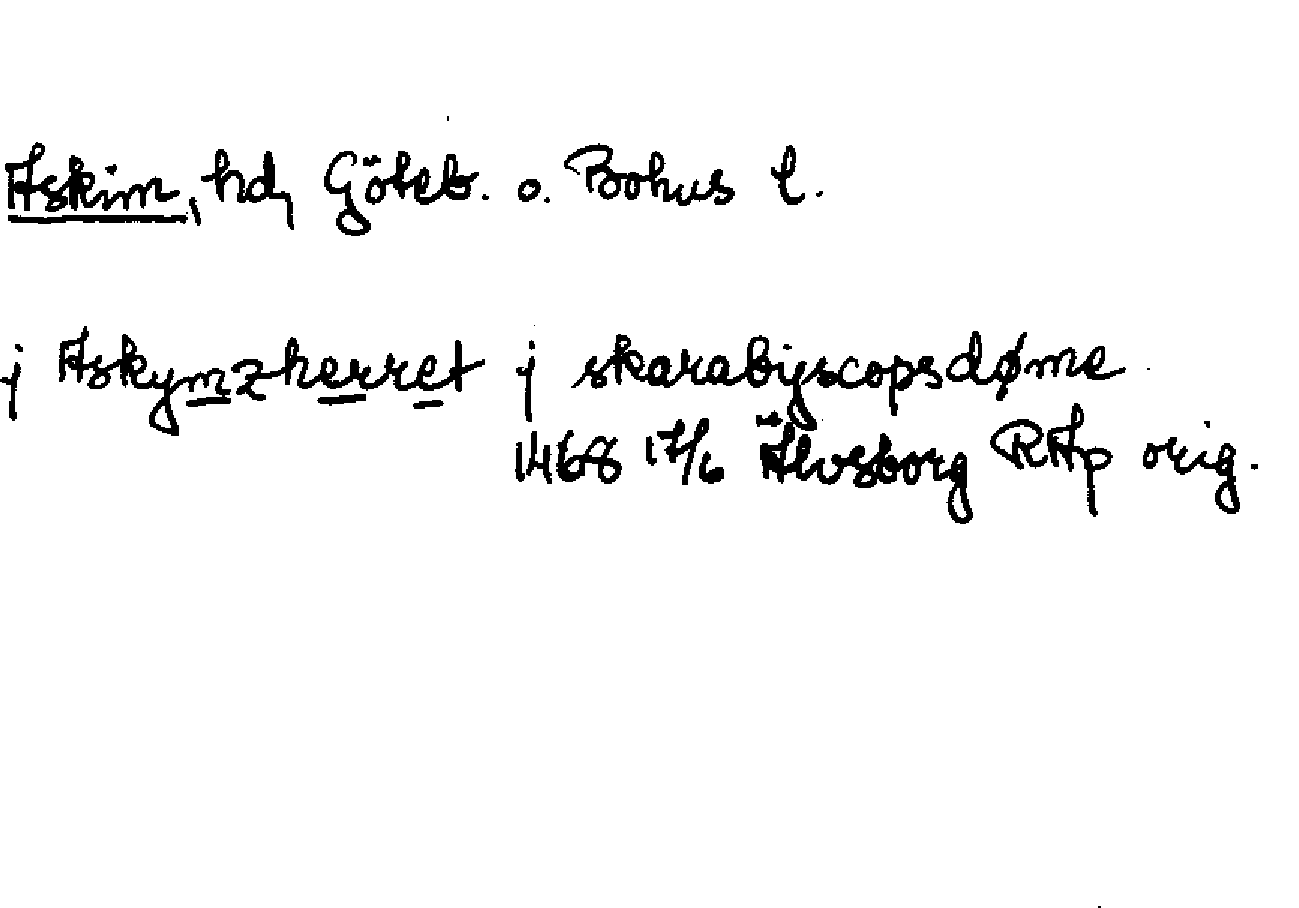 Askim, hd, Göteb. o. Bohus l.
j Askymzherret j skarabijscopsdøme
1468 17/6 Älvsborg RAp orig.